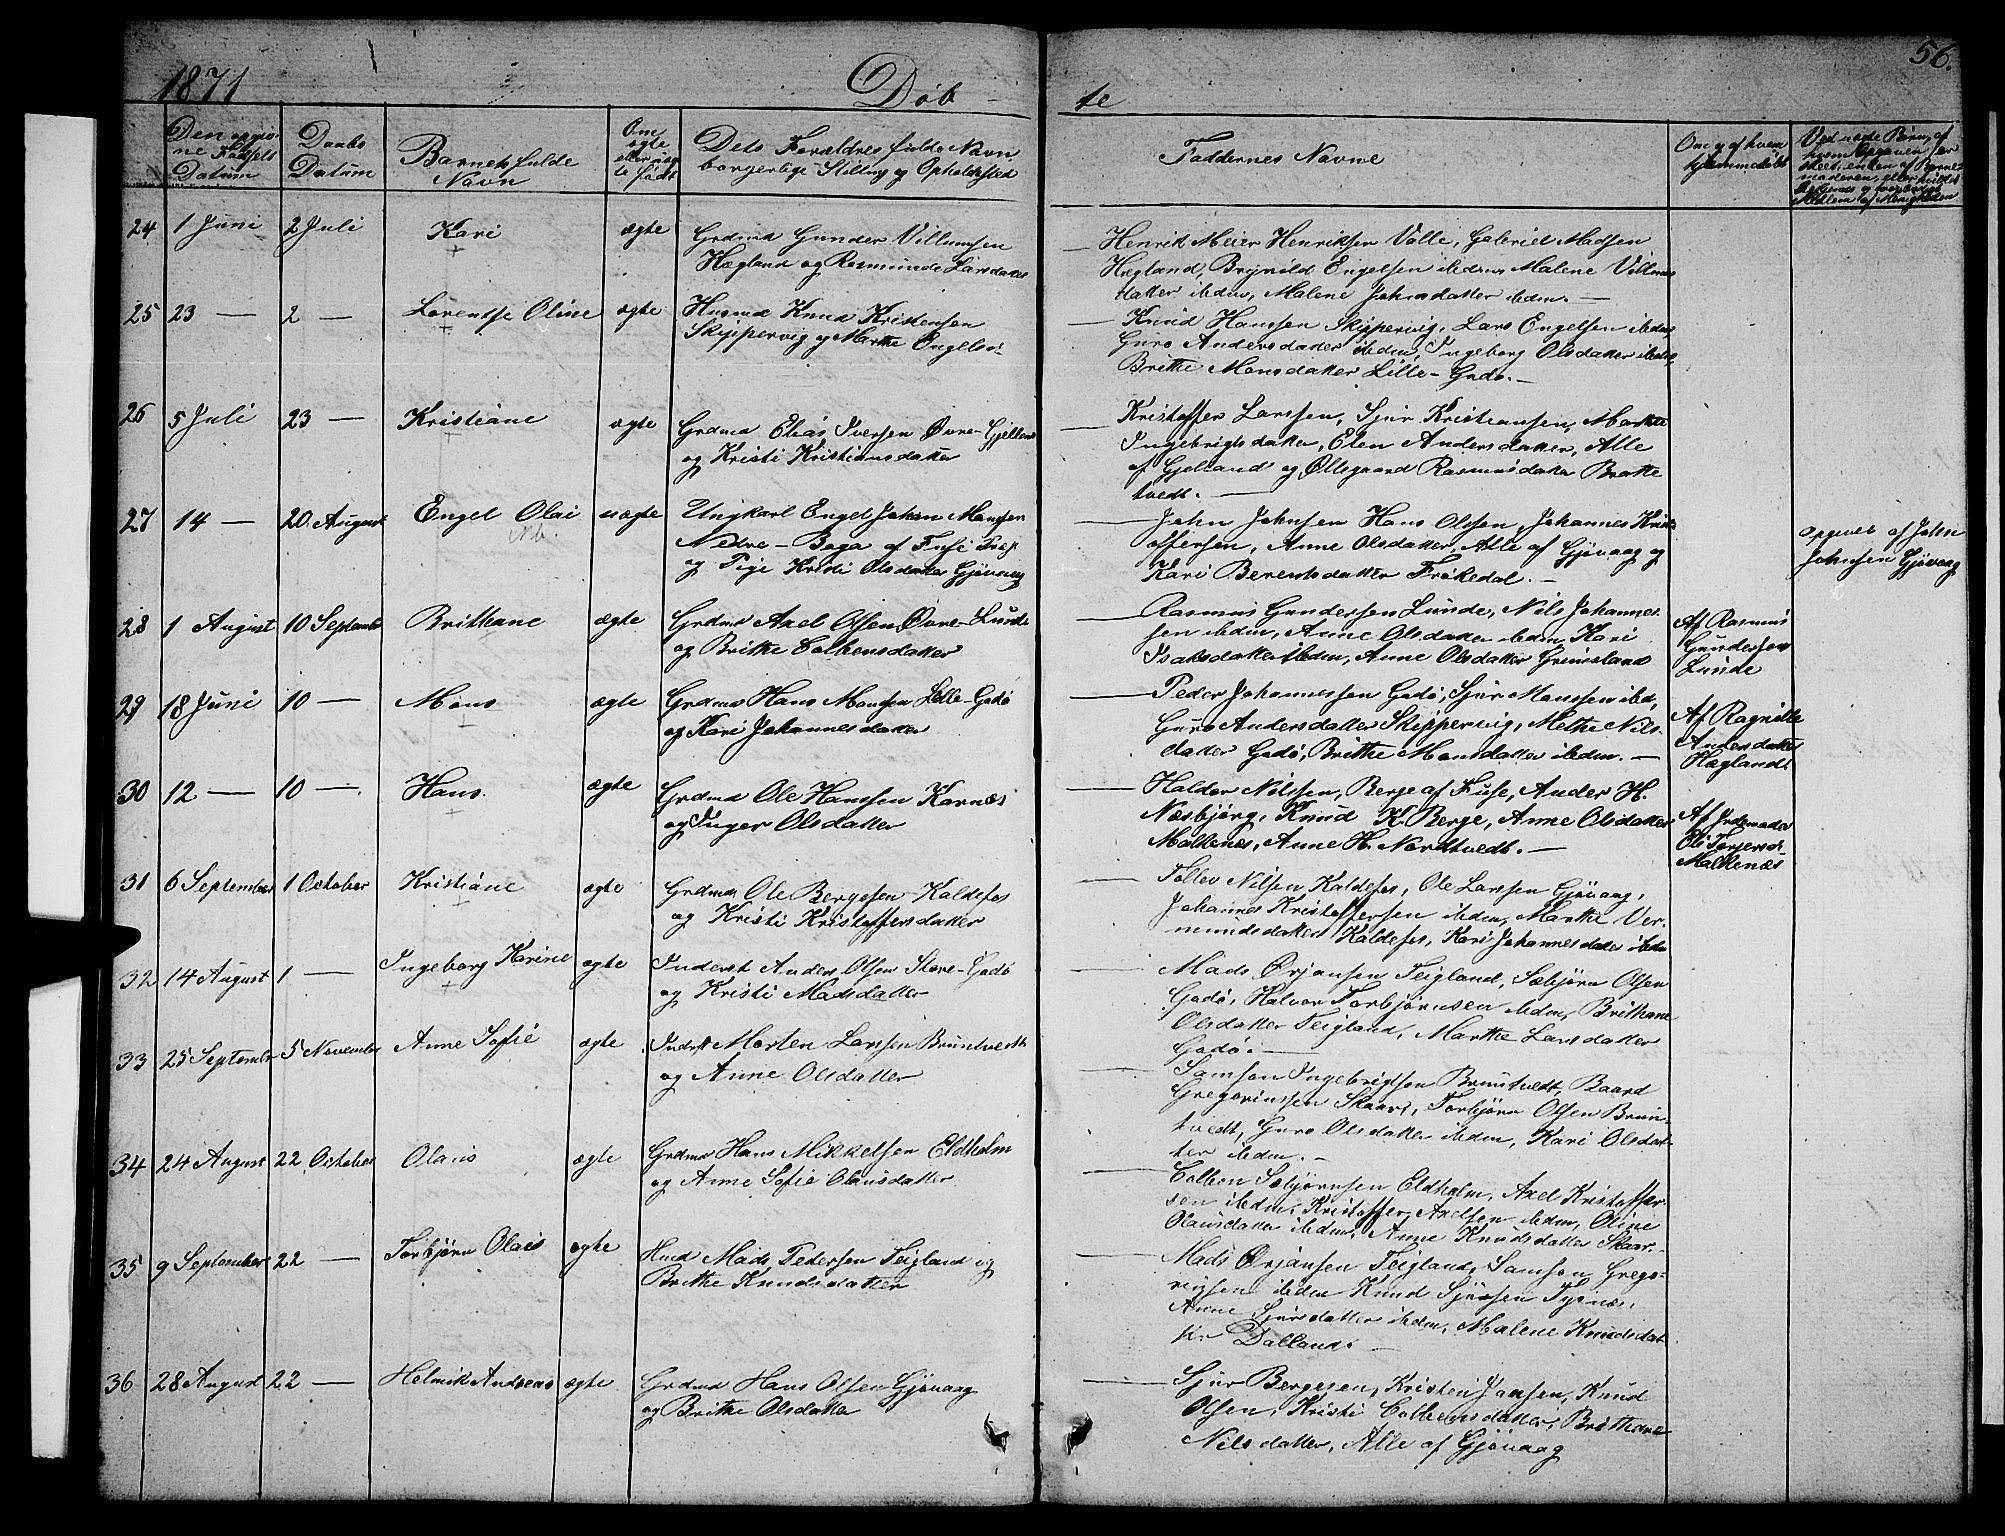 1871 Døb te 56.
Den opgiv-
ne Fødsels
Datum
Daabs
Datum
Barnets fulde
Navn
Om
ægte
eller uæg
te født
Dets Forældres fulde Navn
borgerlige Stilling og Opholdssted
Faddernes Navne
Om og af hvem
hjemmedøbt
Ved uægte Børn, af
hvem Opgaven er
skeet, enten af Barne
moderen, eller hvilket
Medlem af Menigheden
24 1 Juni 2 Juli Kari ægte
Grdmd Gunder Villumsen
Hægland og Rasmunde Larsdatter
Henrik Meier Henriksen Valle, Gabriel Madsen
Hægland, Brynild Engelsen ibdm, Malene Villums
datter ibdm, Malene Johnsdatter ibdm. —
25 23 — 2 — Lorendse Oline ægte
Husmd Knud Kristensen
Skippervig og Marthe Engelsd-
Knud Hanssen Skippervig, Lars Engelsen ibdm,
Guro Andersdatter ibdm, Ingeborg Olsdatter ibdm,
Britthe Monsdatter Lille-Godø. —
26 5 Juli 23 — Kristiane ægte
Grdmd Elias Iversen Øvre-Gjelland
og Kristi Kristiansdatter
Kristoffer Larssen, Sjur Kristiansen, Marthe
Ingebrigtsdatter, Elen Andersdatter, Alle
af Gjelland og Ollegaard Rasmusdatter Bratte
tvedt. —
27 14 — 20 August Engel Olai uægte
Nb.
Ungkarl Engel Johan Monssen
Nedre-Boga af Fuse Præj
og Pige Kristi Olsdatter Gjøvaag
John Johnsen, Hans Olsen, Johannes Krist
offersen, Anne Olsdatter, Alle af Gjøvaag og
Kari Berentsdatter Frøkedal. —
opgivet af John
Johnsen Gjøvaag
28 1 August 10 September Brithane ægte
Grdmd Axel Olsen Øvre-Lunde
og Britthe Colbensdatter
Rasmus Gundersen Lunde, Nils Johannes
sen ibdm, Anne Olsdatter ibdm, Kari
Isaksdatter ibdm, Anne Olsdatter Grimsland
Af Rasmus
Gundersen
Lunde
29 18 Juni 10 — Mons ægte
Grdmd Hans Monsen Lille-Godø
og Kari Johannesdatter
Peder Johannessen Godø, Sjur Monssen ibd,
Guro Andersdatter Skippervig, Methe Nils-
datter Godø, Britthe Monsdatter ibdm. —
Af Ragnilde
Andersdatter
Hægland
30 12 — 10 — Hans ægte
Grdmd Ole Hanssen Kornæs
og Inger Olsdatter
Haldor Nilssen, Berge af Fuse, Ander H.
Næsbjørg, Knud K. Berge, Anne Olsdatter
Malkenes, Anne H. Nordtvedt. —
Af Jordemoder
Malkenæs
31 6 September 1 October Kristiane ægte
Grdmd Ole Bergesen Kaldefos
og Kristi Kristoffersdatter
Tollev Nilsen Kaldefos, Ole Larssen Gjøvaag,
Johannes Kristoffersen ibdm, Marthe Ver
mundsdatter Kaldefos, Kari Johannesdatter ibdm
32 14 August 1 — Ingeborg Karine ægte
Inderst Anders Olsen Store-Godø
og Kristi Madsdatter
Mads Ørjansen Teigland, Sæbjørn Olsen
Godø, Halvor Torbjørnsen ibdm, Brithane
Olsdatter Teigland, Marthe Larsdatter
Godø. —
33 25 September 5 November Anne Sofie ægte
Inderst Morten Larssen Bruntvedt
og Anne Olsdatter
Samson Ingebrigtsen Bruntvedt, Baard
Gregoriussen Skaar, Torbjørn Olsen Brun-
tvedt, Guro Olsdatter ibdm, Kari Olsdat-
ter ibdm. —
34 24 August 22 October Olaus ægte
Grdmd Hans Mikkelsen Eldholm
og Anne Sofie Olausdatter
Colben Sæbjørnsen Eldholm, Axel Kristoffer
sen ibdm, Kristoffer Axelsen ibdm, Oline
Olausdatter ibdm, Anne Knudsdatter Skaar-
35 9 September 22 — Torbjørn Olais ægte
Hmd Mads Pedersen Teigland og
Britthe Knudsdatter
Mads Ørjansen Teigland, Samson Grego-
riussen ibdm Knud Sjursen Tysnæs,
Anne Sjursdatter ibdm, Malene Knudsdat
ter Dalland.
36 28 August 22 — Helmik Andreas ægte
Grdmd Hans Olsen Gjøvaag
og Britthe Olsdatter
Sjur Bergesen, Kristen Jansen, Knud
Olsen, Kristi Colbensdatter, Brithane
Nilsdatter, Alle af Gjøvaag